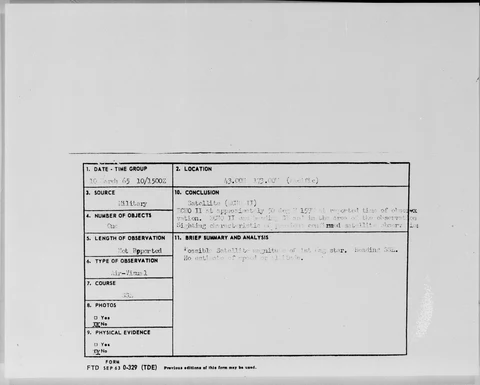 1. DATE - TIME GROUP
10 March 65 10/1500Z
2. LOCATION
(Pacific)
3. SOURCE
Military
10. CONCLUSION
Satellite (ECHO II)
ECHO II at approximately 50 deg N at reported time of
ECHO II was heading in the area of the observation
Sighting characteristics satellite
4. NUMBER OF OBJECTS
One
5. LENGTH OF OBSERVATION
Not Reported
11. BRIEF SUMMARY AND ANALYSIS
Possible Satellite magnitude of 1st mag star. Heading
No estimate of speed or altitude.
6. TYPE OF OBSERVATION
Air-Visual
7. COURSE
8. PHOTOS
□ Yes
XX No
9. PHYSICAL EVIDENCE
□ Yes
XX No
FORM
FTD SEP 63 0-329 (TDE) Previous editions of this form may be used.